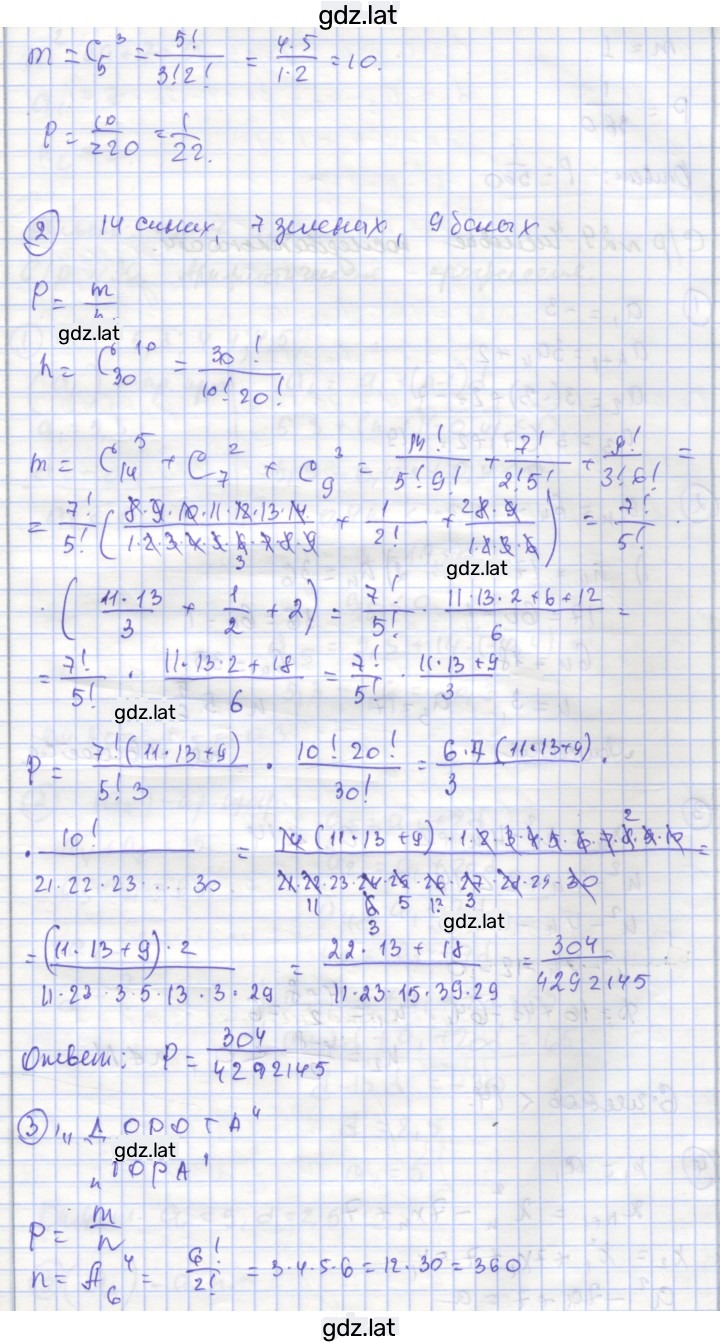 gdz.lat
m = C₅³ = 5!/(3!2!) = (4·5)/(1·2) = 10.
P = 10/220 = 1/22.
② 14 синих, 7 зеленых, 9 белых
P = m/n
gdz.lat
n = C₃₀¹⁰ = 30!/(10! 20!)
m = C₁₄⁵ + C₇² + C₉³ = 14!/(5!9!) + 7!/(2!5!) + 9!/(3!6!) =
= 7!/5! ( (8·9·10·11·12·13·14)/(1·2·3·4·5·6·7·8·9) + 1/2! + (8·9)/(1·2·3·6) ) = 7!/5! ·
gdz.lat
· ( (11·13)/3 + 1/2 + 2 ) = 7!/5! · (11·13·2+6+12)/6 =
= 7!/5! · (11·13·2+18)/6 = 7!/5! · (11·13+9)/3
gdz.lat
P = 7!(11·13+9)/(5! 3) · (10! 20!)/30! = 6·7(11·13+9)/3 ·
· 10!/(21·22·23·....30) = 14(11·13+9)·1·2·3·4·5·6·7·8·9·10/(21·22·23·24·25·26·27·28·29·30) =
gdz.lat
= (11·13+9)·2/(11·23·3·5·13·3·29) = (22·13+18)/(11·23·15·39·29) = 304/4292145
Ответ: P = 304/4292145
③ "ДОРОГА"
gdz.lat
"ГОРА"
P = m/n
n = A₆⁴ = 6!/2! = 3·4·5·6 = 12·30 = 360
gdz.lat